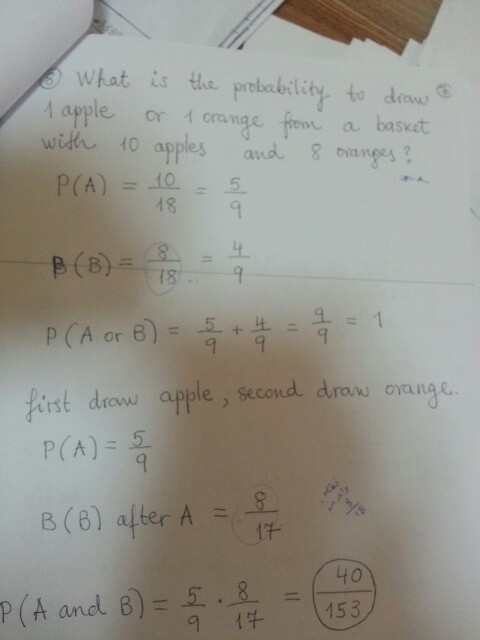 ⑤ What is the probability to draw
1 apple or 1 orange from a basket
with 10 apples and 8 oranges?
P(A) = 10/18 = 5/9
B(B) = 8/18 = 4/9
P(A or B) = 5/9 + 4/9 = 9/9 = 1
first draw apple, second draw orange.
P(A) = 5/9
B(B) after A = 8/17
P(A and B) = 5/9 · 8/17 = 40/153